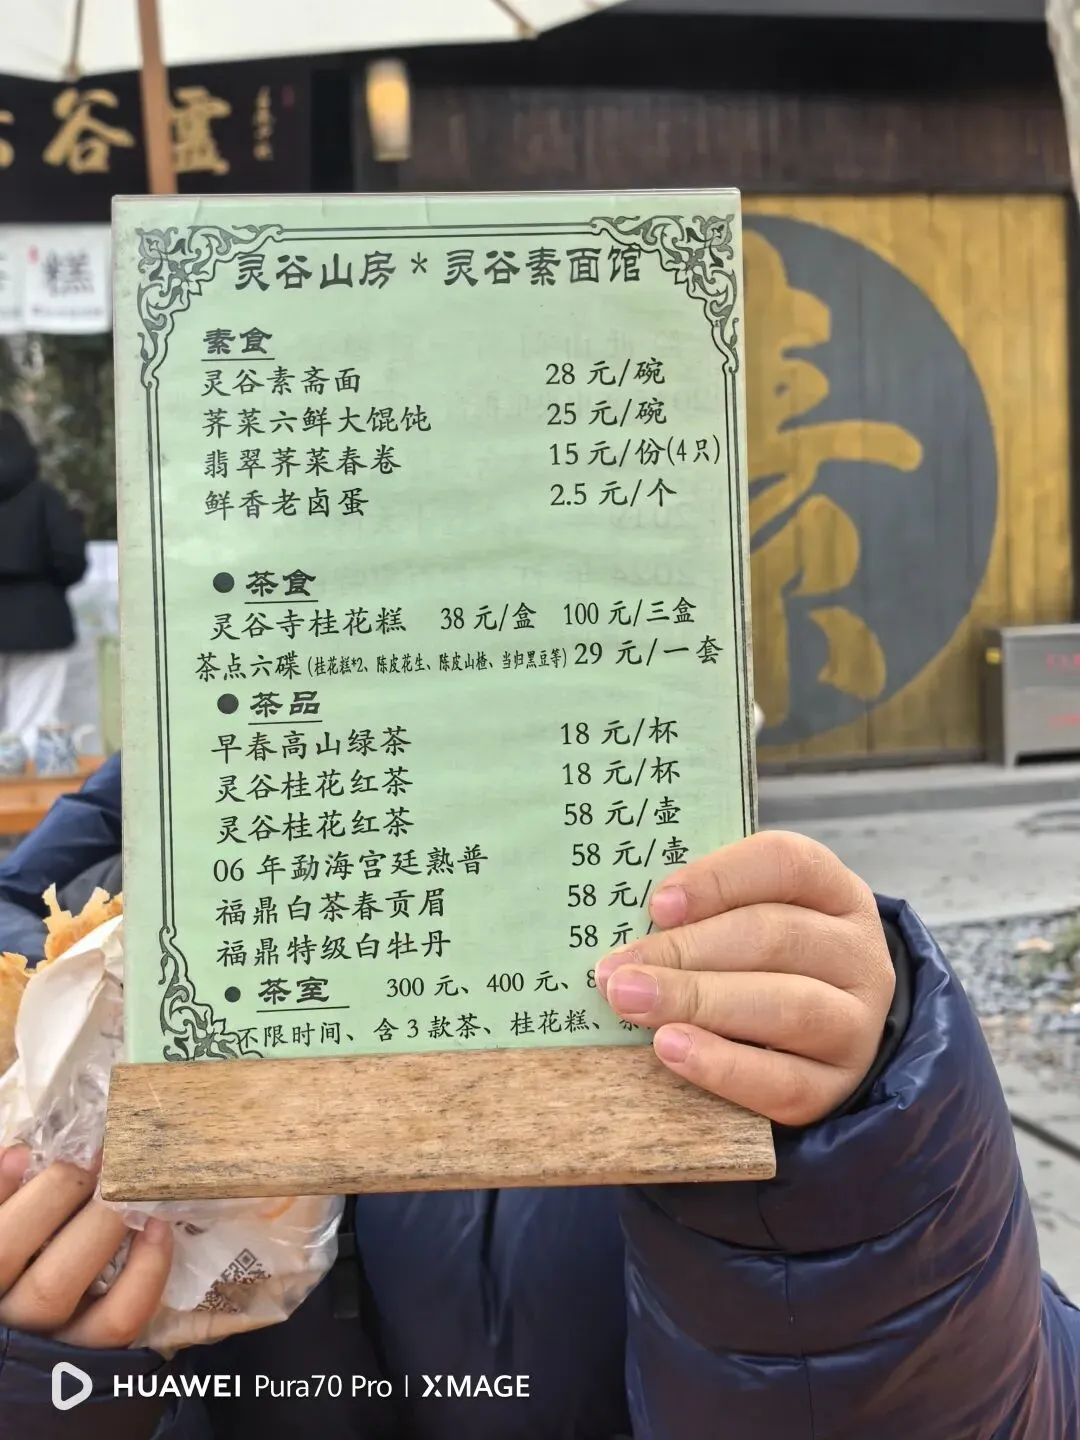 谷靈
糕
灵谷山房*灵谷素面馆
素食
灵谷素斋面 28 元/碗
荠菜六鲜大馄饨 25 元/碗
翡翠荠菜春卷 15 元/份(4只)
鲜香老卤蛋 2.5 元/个
● 茶食
灵谷寺桂花糕 38 元/盒 100 元/三盒
茶点六碟(桂花糕*2、陈皮花生、陈皮山楂、当归黑豆等) 29 元/一套
● 茶品
早春高山绿茶 18 元/杯
灵谷桂花红茶 18 元/杯
灵谷桂花红茶 58 元/壶
06 年勐海宫廷熟普 58 元/壶
福鼎白茶春贡眉 58 元/
福鼎特级白牡丹 58 元/
● 茶室 300 元、400 元、8
不限时间、含 3 款茶、桂花糕、茶
素
HUAWEI Pura70 Pro | XMAGE